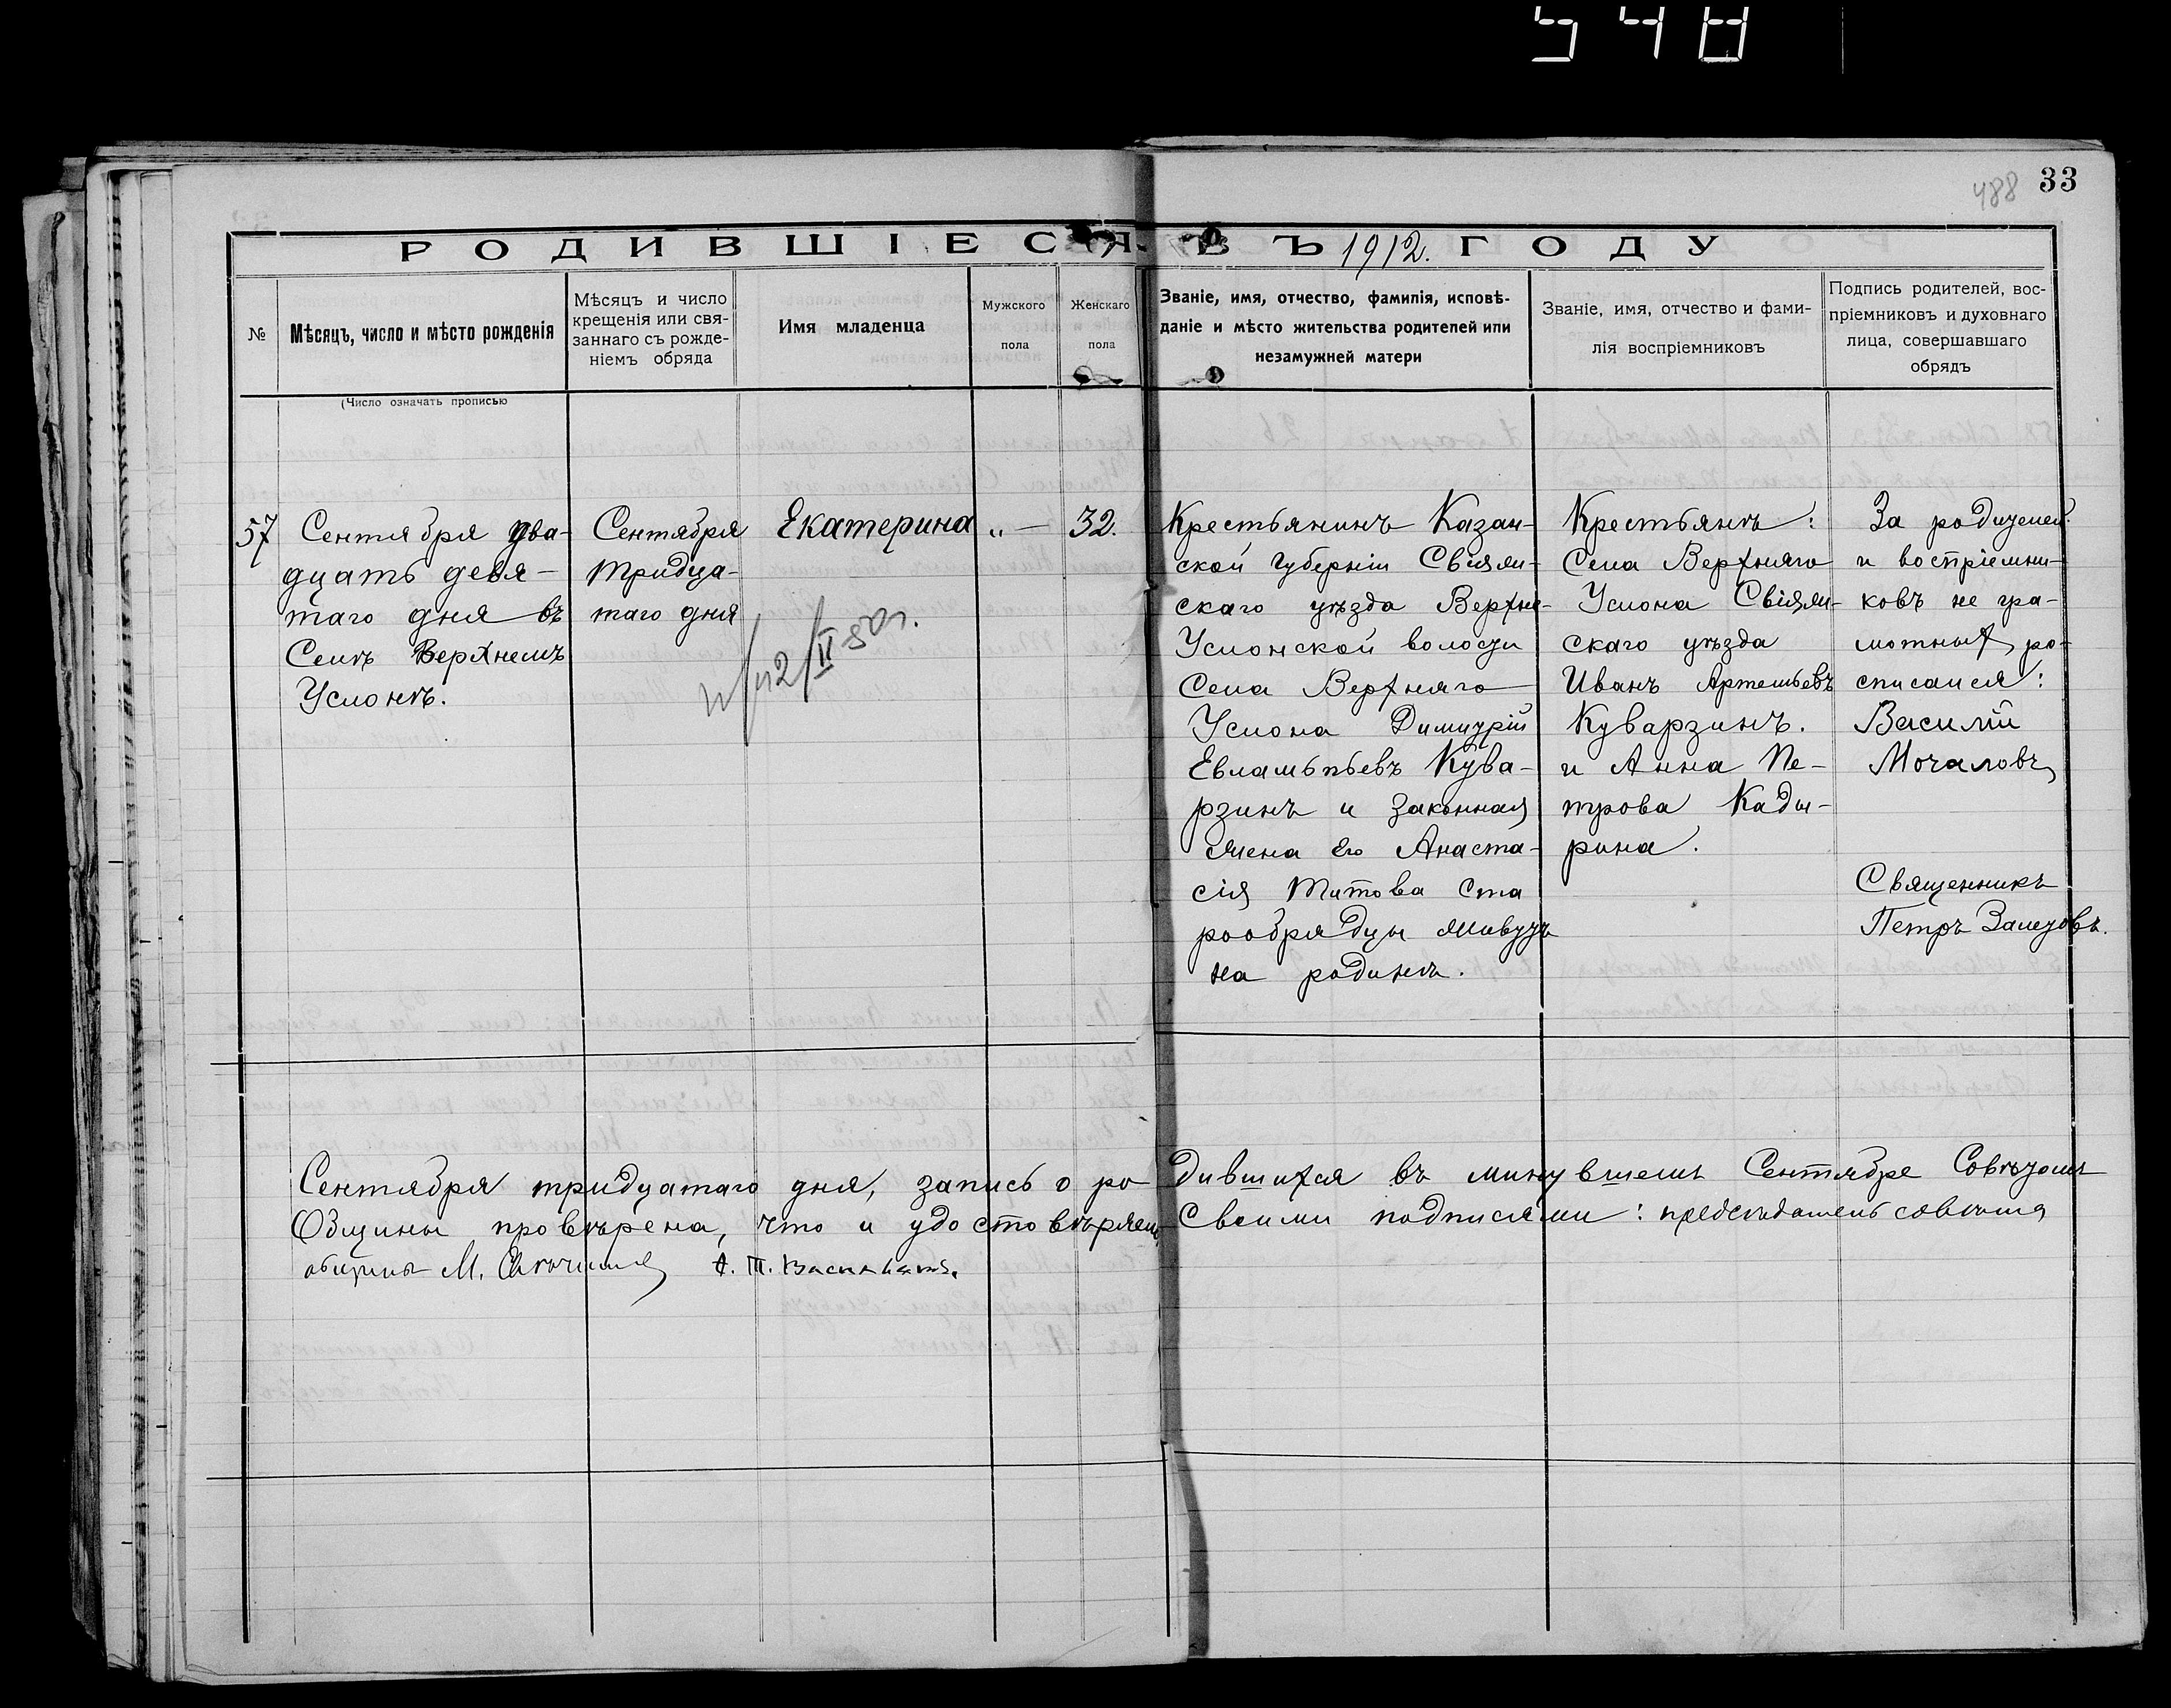 548
488 33
РОДИВШІЕСЯ ВЪ 1912. ГОДУ
№
Мѣсяцъ, число и мѣсто рожденія
Мѣсяцъ и число
крещенія или свя-
заннаго съ рожде-
ніемъ обряда
Имя младенца
Мужского
пола
Женскаго
пола
Званіе, имя, отчество, фамилія, исповѣ-
даніе и мѣсто жительства родителей или
незамужней матери
Званіе, имя, отчество и фами-
лія воспріемниковъ
Подпись родителей, вос-
пріемниковъ и духовнаго
лица, совершавшаго
обрядъ
(Число означать прописью
57
Сентября два-
дцать девя-
таго дня въ
Селѣ Верхнемъ
Услонѣ.
Сентября
тридца-
таго дня
Екатерина
„ —
32.
Крестьянинъ Казан-
ской губерніи Свіяж-
скаго уѣзда Верхне-
Услонской волости
Села Верхняго
Услона Димитрій
Евлампьевъ Кува-
рзинъ и законная
жена его Анаста-
сія Титова Ста
рообрядцы живутъ
на родинѣ.
Крестьянѣ:
Села Верхняго
Услона Свіяж-
скаго уѣзда
Иванъ Артемьевъ
Куварзинъ.
и Анна Пе-
трова Кады-
рина.
За родителей
и воспріемни-
ковъ не гра-
мотных ро-
списался:
Василій
Мочаловъ
Священникъ
Петръ Залетовъ.
Сентября тридцатаго дня, запись о ро дившихся въ минувшемъ Сентябре Совѣтомъ
Общины провѣрена, что и удостовѣряемъ Своими подписями: предсѣдатель совѣта
общины М.